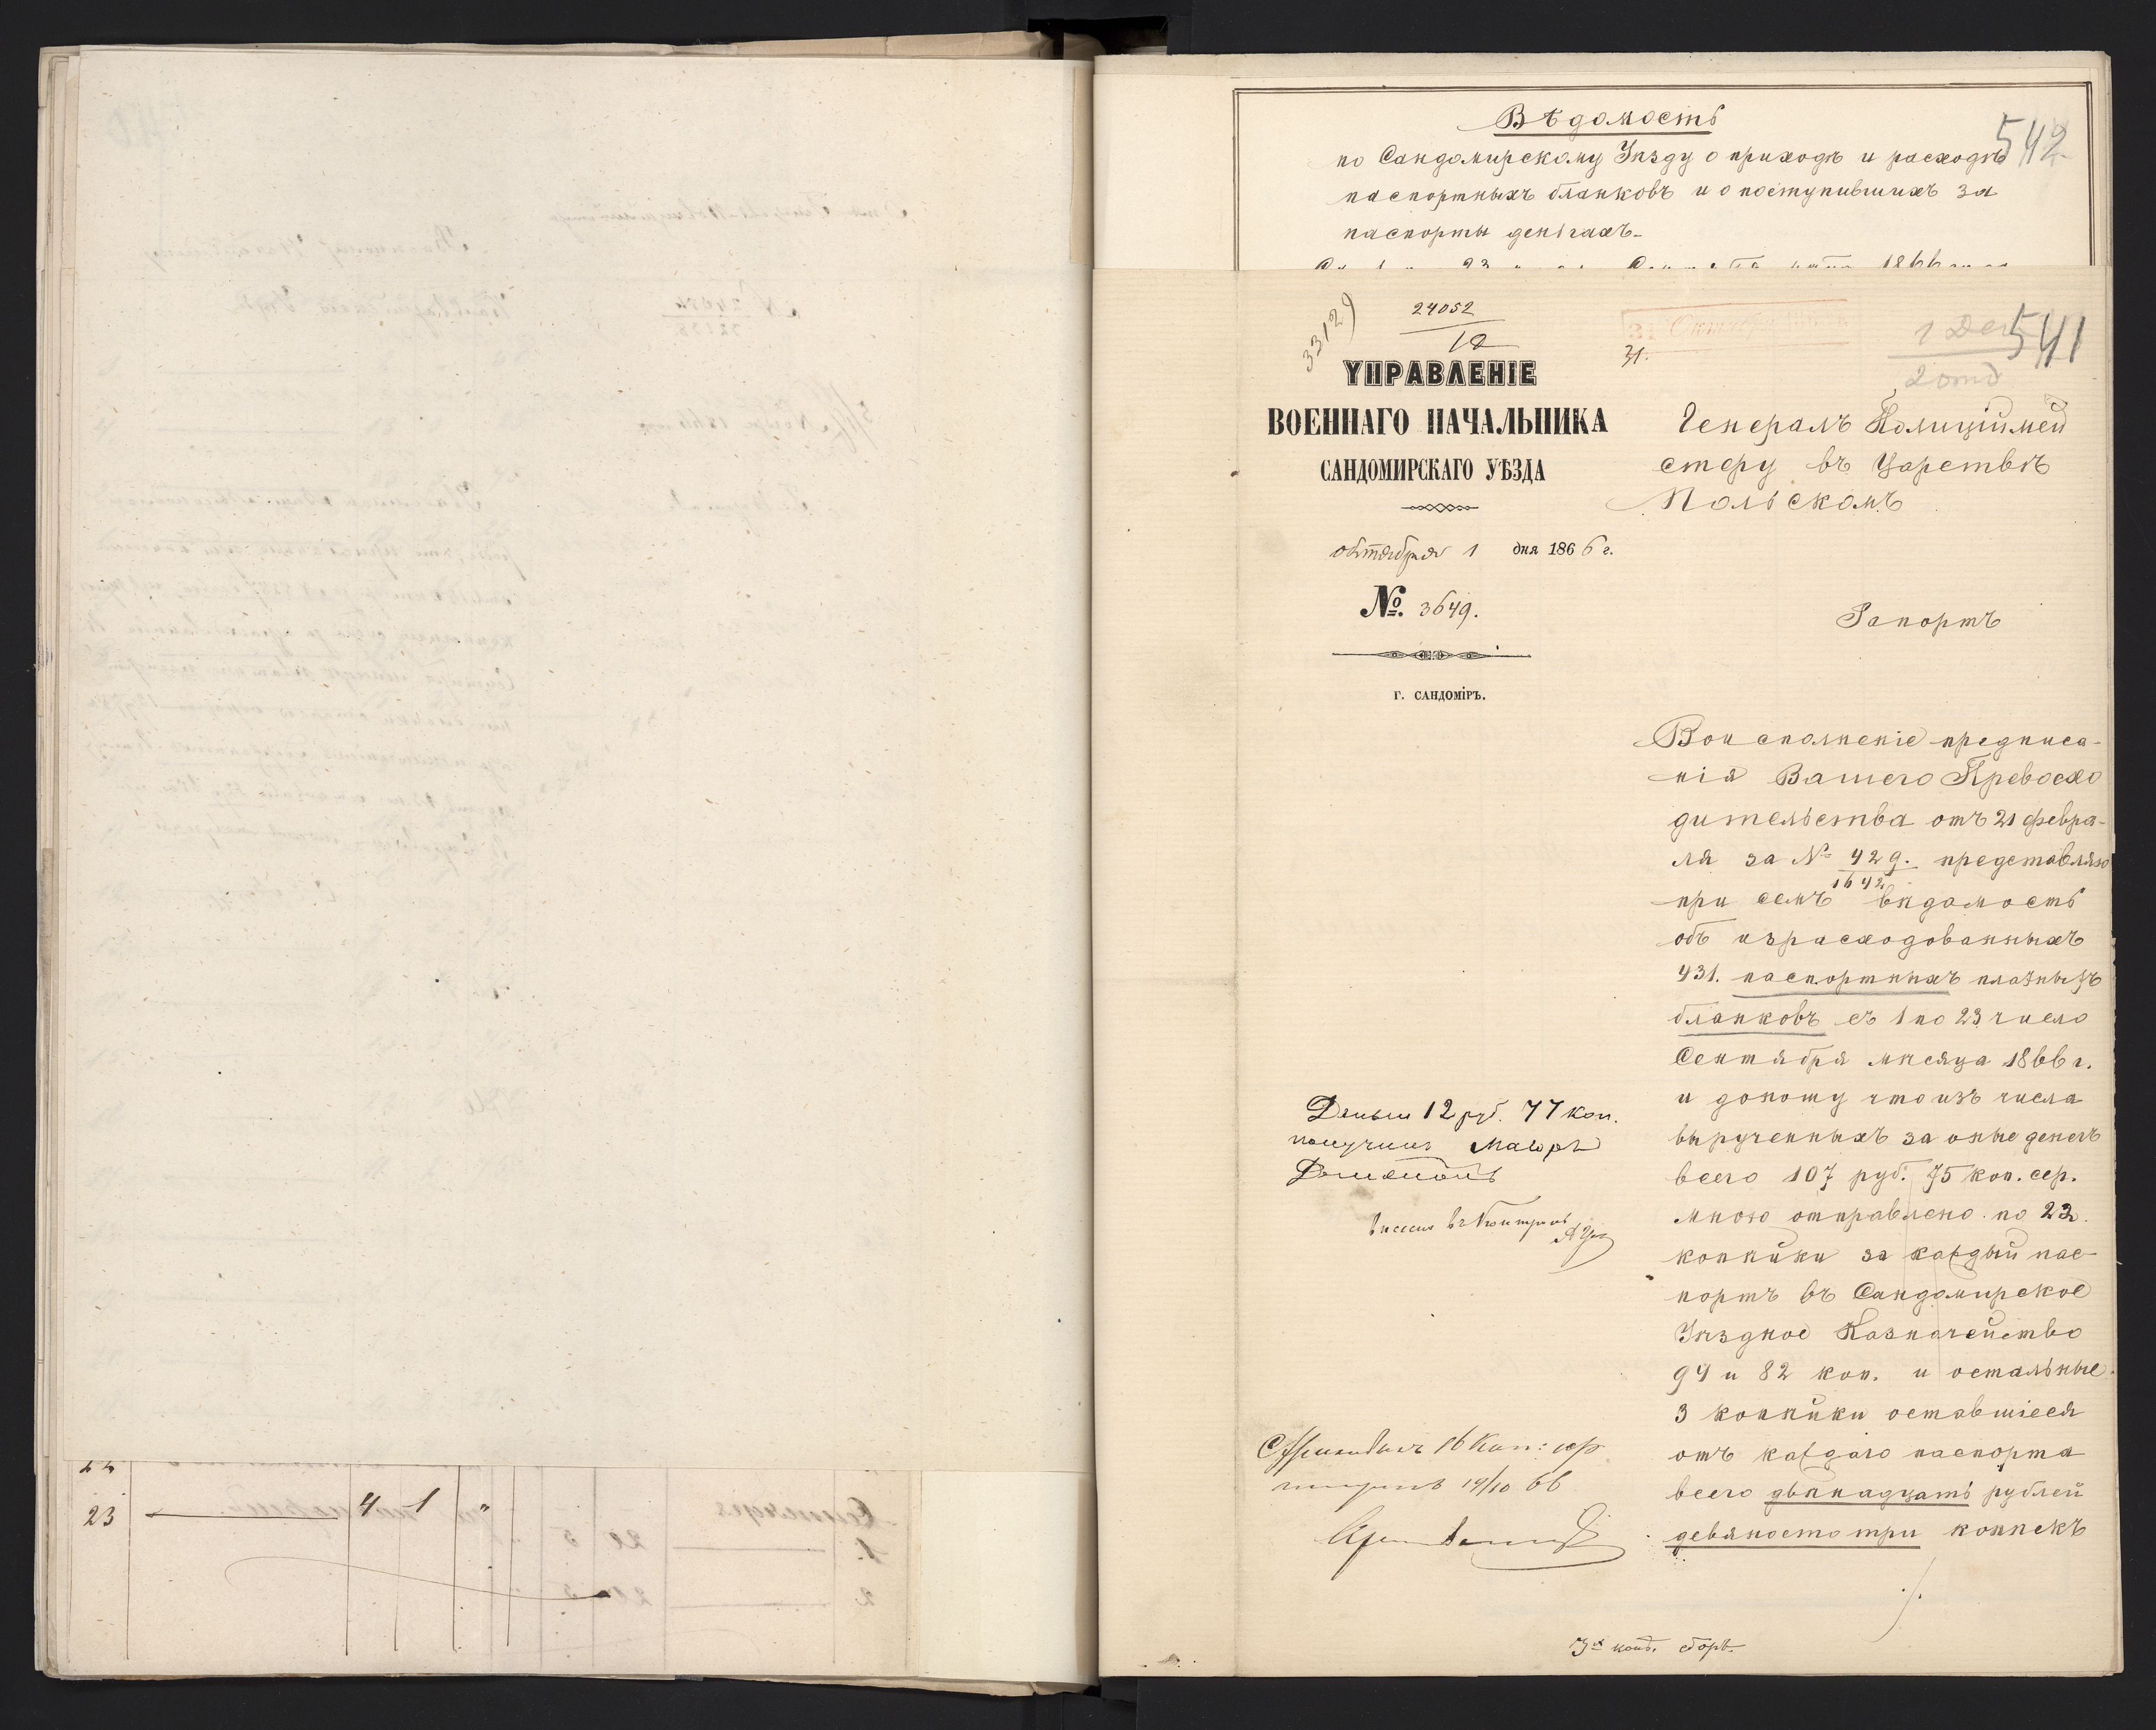 Вѣдомость
по Сандомирскому Уѣзду о приходѣ и расходѣ
паспортныхъ бланковъ и о поступившихъ за
паспорты деньгахъ
542
1866
33129
24052
12
31.
541
2 отд
УПРАВЛЕНІЕ
ВОЕННАГО НАЧАЛЬНИКА
САНДОМИРСКАГО УѢЗДА
октября 1 дня 1866 г.
№. 3649.
Г. САНДОМІРЪ.
Генералъ Полиціймей
стеру въ Царствѣ
Польскомъ
Рапортъ
Во исполненіе предписа-
нія Вашего Превосхо
дительства отъ 21 февра-
ля за № 429. представляю
1642
при семъ вѣдомость
объ израсходованныхъ
431. паспортныхъ платныхъ
бланковъ съ 1 по 23 число
Сентября мѣсяца 1866 г.
и доношу что изъ числа
вырученныхъ за оные денегъ
всего 107 руб. 75 коп. сер.
мною отправлено по 22
копѣйки за каждый пас-
портъ въ Сандомирское
Уѣздное Казначейство
94 и 82 коп. и остальные
3 копѣйки оставшіеся
отъ каждаго паспорта
всего двѣнадцать рублей
девяносто три копѣекъ
Деньги 12 руб. 77 коп.
получилъ Маіоръ
16 Коп: сер
19/10 66
сборъ
22
23 4 1 "